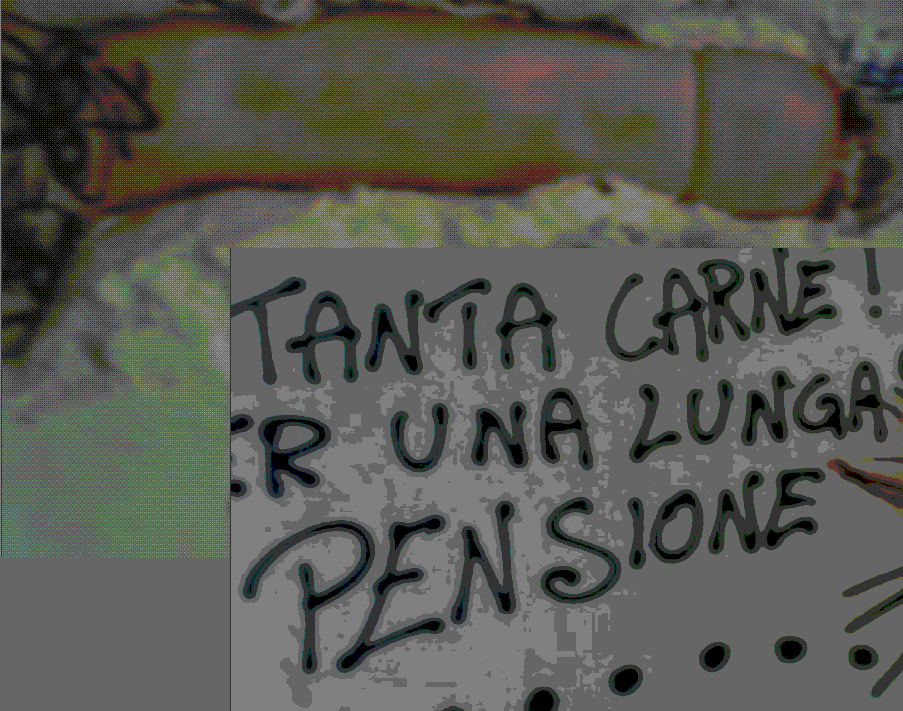 TANTA CARNE!
ER UNA LUNGA
PENSIONE